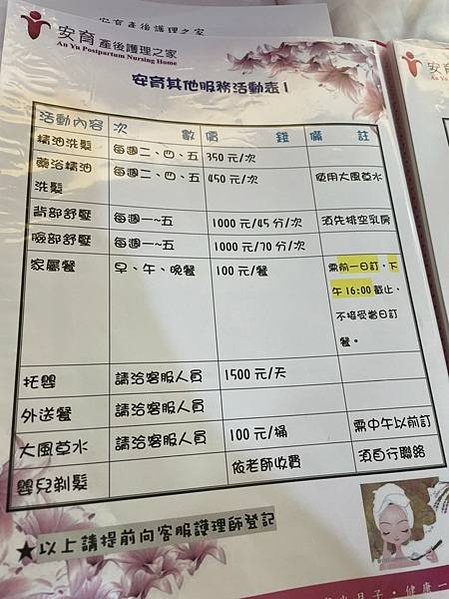 安育產後護理之家
安育產後護理之家
An Yu Postpartum Nursing Home
安育其他服務活動表1
活動內容 次數 價錢 備註
精油洗髮 每週二、四、五 350元/次
藥浴精油洗髮 每週二、四、五 450元/次 使用大風草水
背部舒壓 每週一~五 1000元/45分/次 須先排空乳房
臉部舒壓 每週一~五 1000元/70分/次
家屬餐 早、午、晚餐 100元/餐 需前一日訂,下
午16:00截止,
不接受當日訂
餐。
托嬰 請洽客服人員 1500元/天
外送餐 請洽客服人員
大風草水 請洽客服人員 100元/桶 需中午以前訂
嬰兒剃髮 依老師收費 須自行聯絡
★以上請提前向客服護理師登記
安育
An Yu